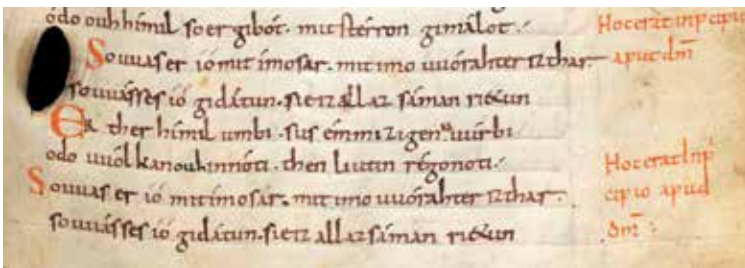 ódo ouh hímil so er gibót. mit stérron gimálot.
So uuas er ió mit ímo sár. mit imo uuórahter iz thar.
so uuásses ió gidátun. sie iz állaz sáman rietun
Er ther hímil umbi. sus émmizigen uuírbi
odo uuólkan ouh in nóti. then liutin régonoti.
So uuas er ió mit imo sár. mit imo uuórahter iz thar.
so uuásses ió gidátun. sie iz allaz sáman rietun
Hoc erat inp cipiu
aput dm̄
Hoc erat Inp
cipio apud
dm̄: